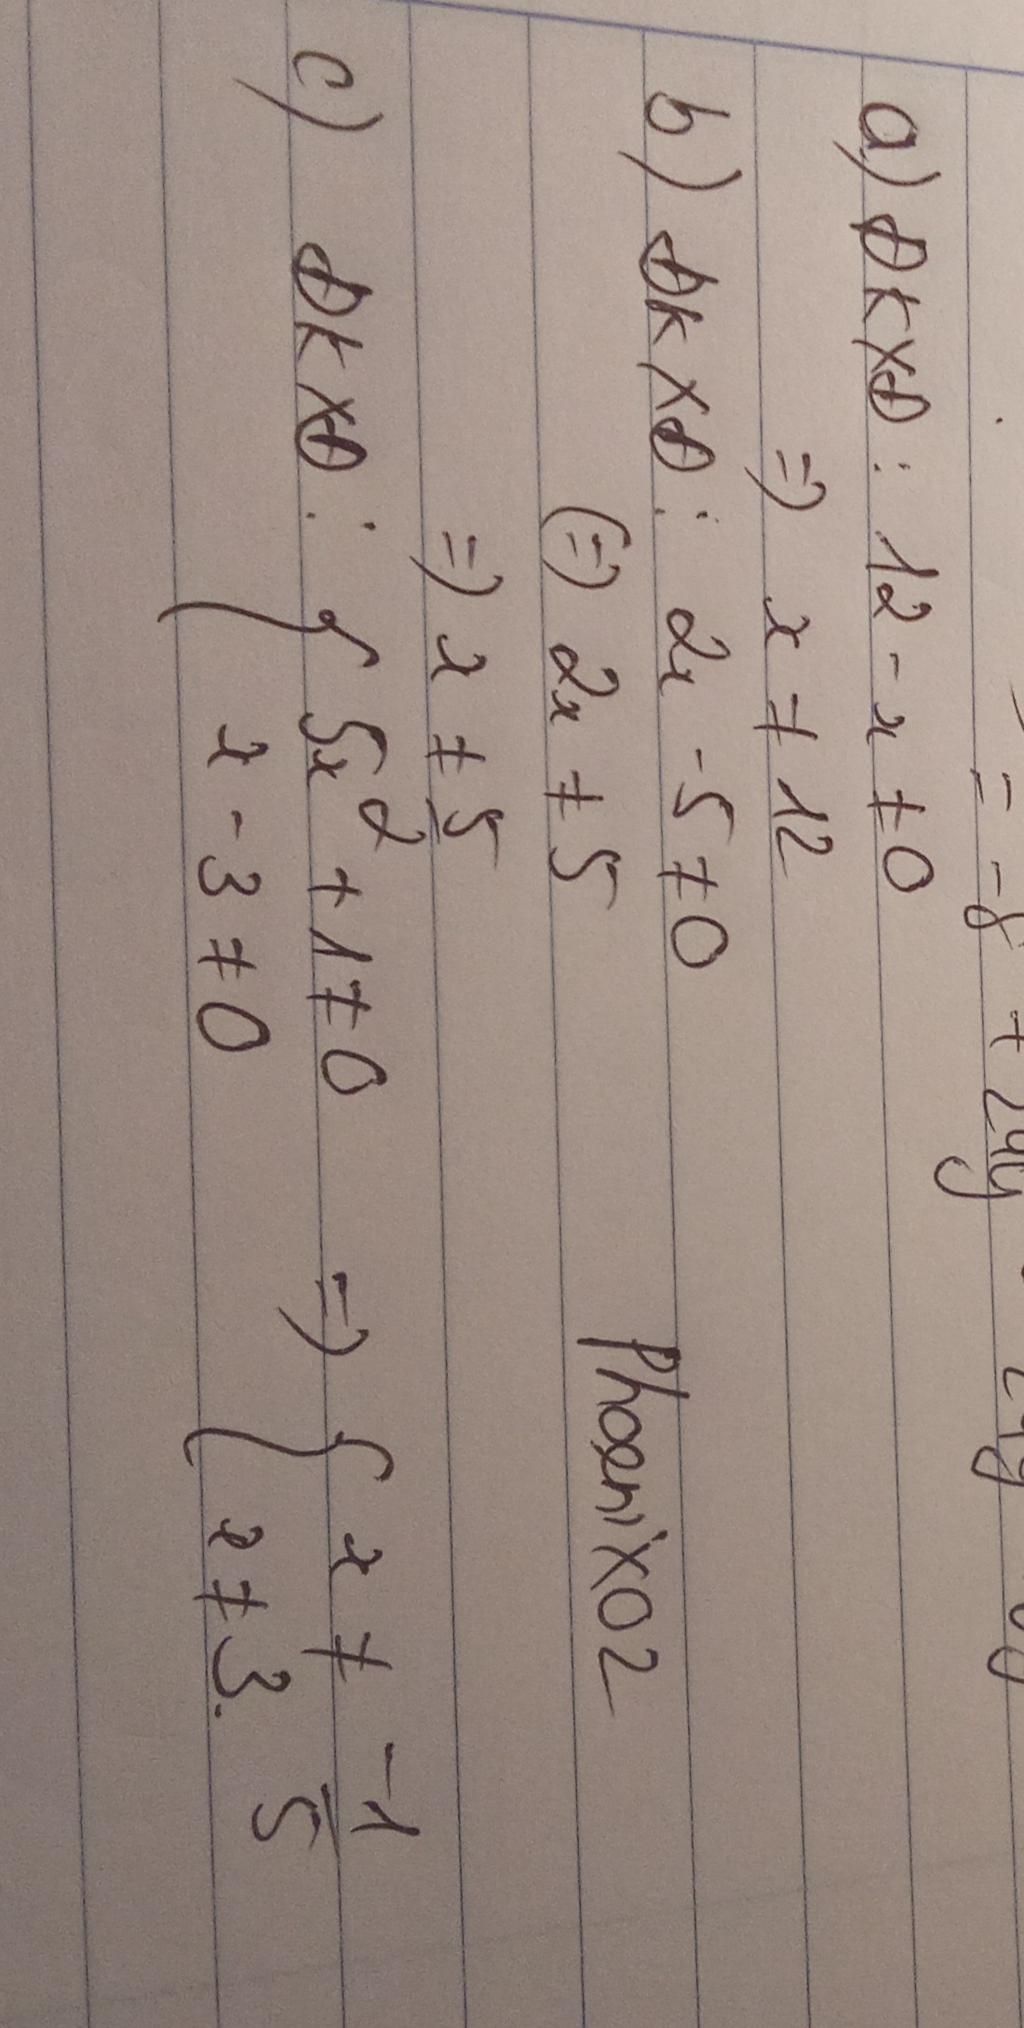 = -8 + 24y
a) ĐKXĐ: 12 - x ≠ 0
=> x ≠ 12
b) ĐKXĐ: 2x - 5 ≠ 0
(=) 2x ≠ 5
=> x ≠ 5
Phoenix02
c) ĐKXĐ: { 5x² + 1 ≠ 0 => { x ≠ -1/5
x - 3 ≠ 0 x ≠ 3.